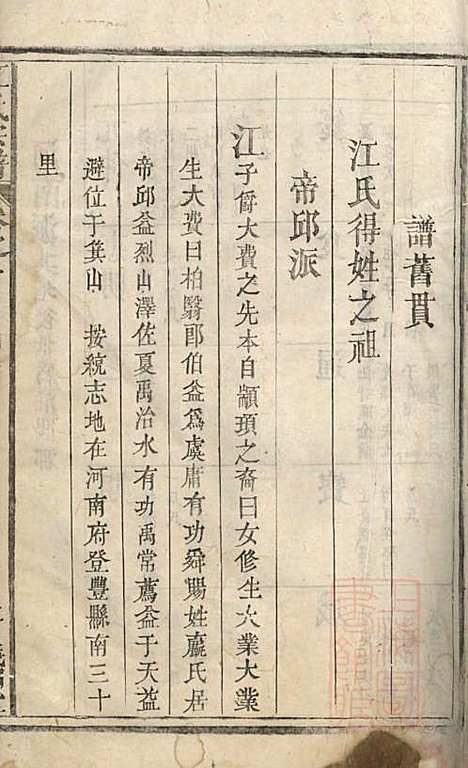 譜舊貫
江氏得姓之祖
帝邱派
江子爵大費之先本自顓頊之裔曰女修生大業大業
生大費曰柏翳郎伯益爲虞庸有功舜賜姓嬴氏居
帝邱益烈山澤佐夏禹治水有功禹常薦益于天益
避位于箕山 按統志地在河南府登豐縣南三十
里